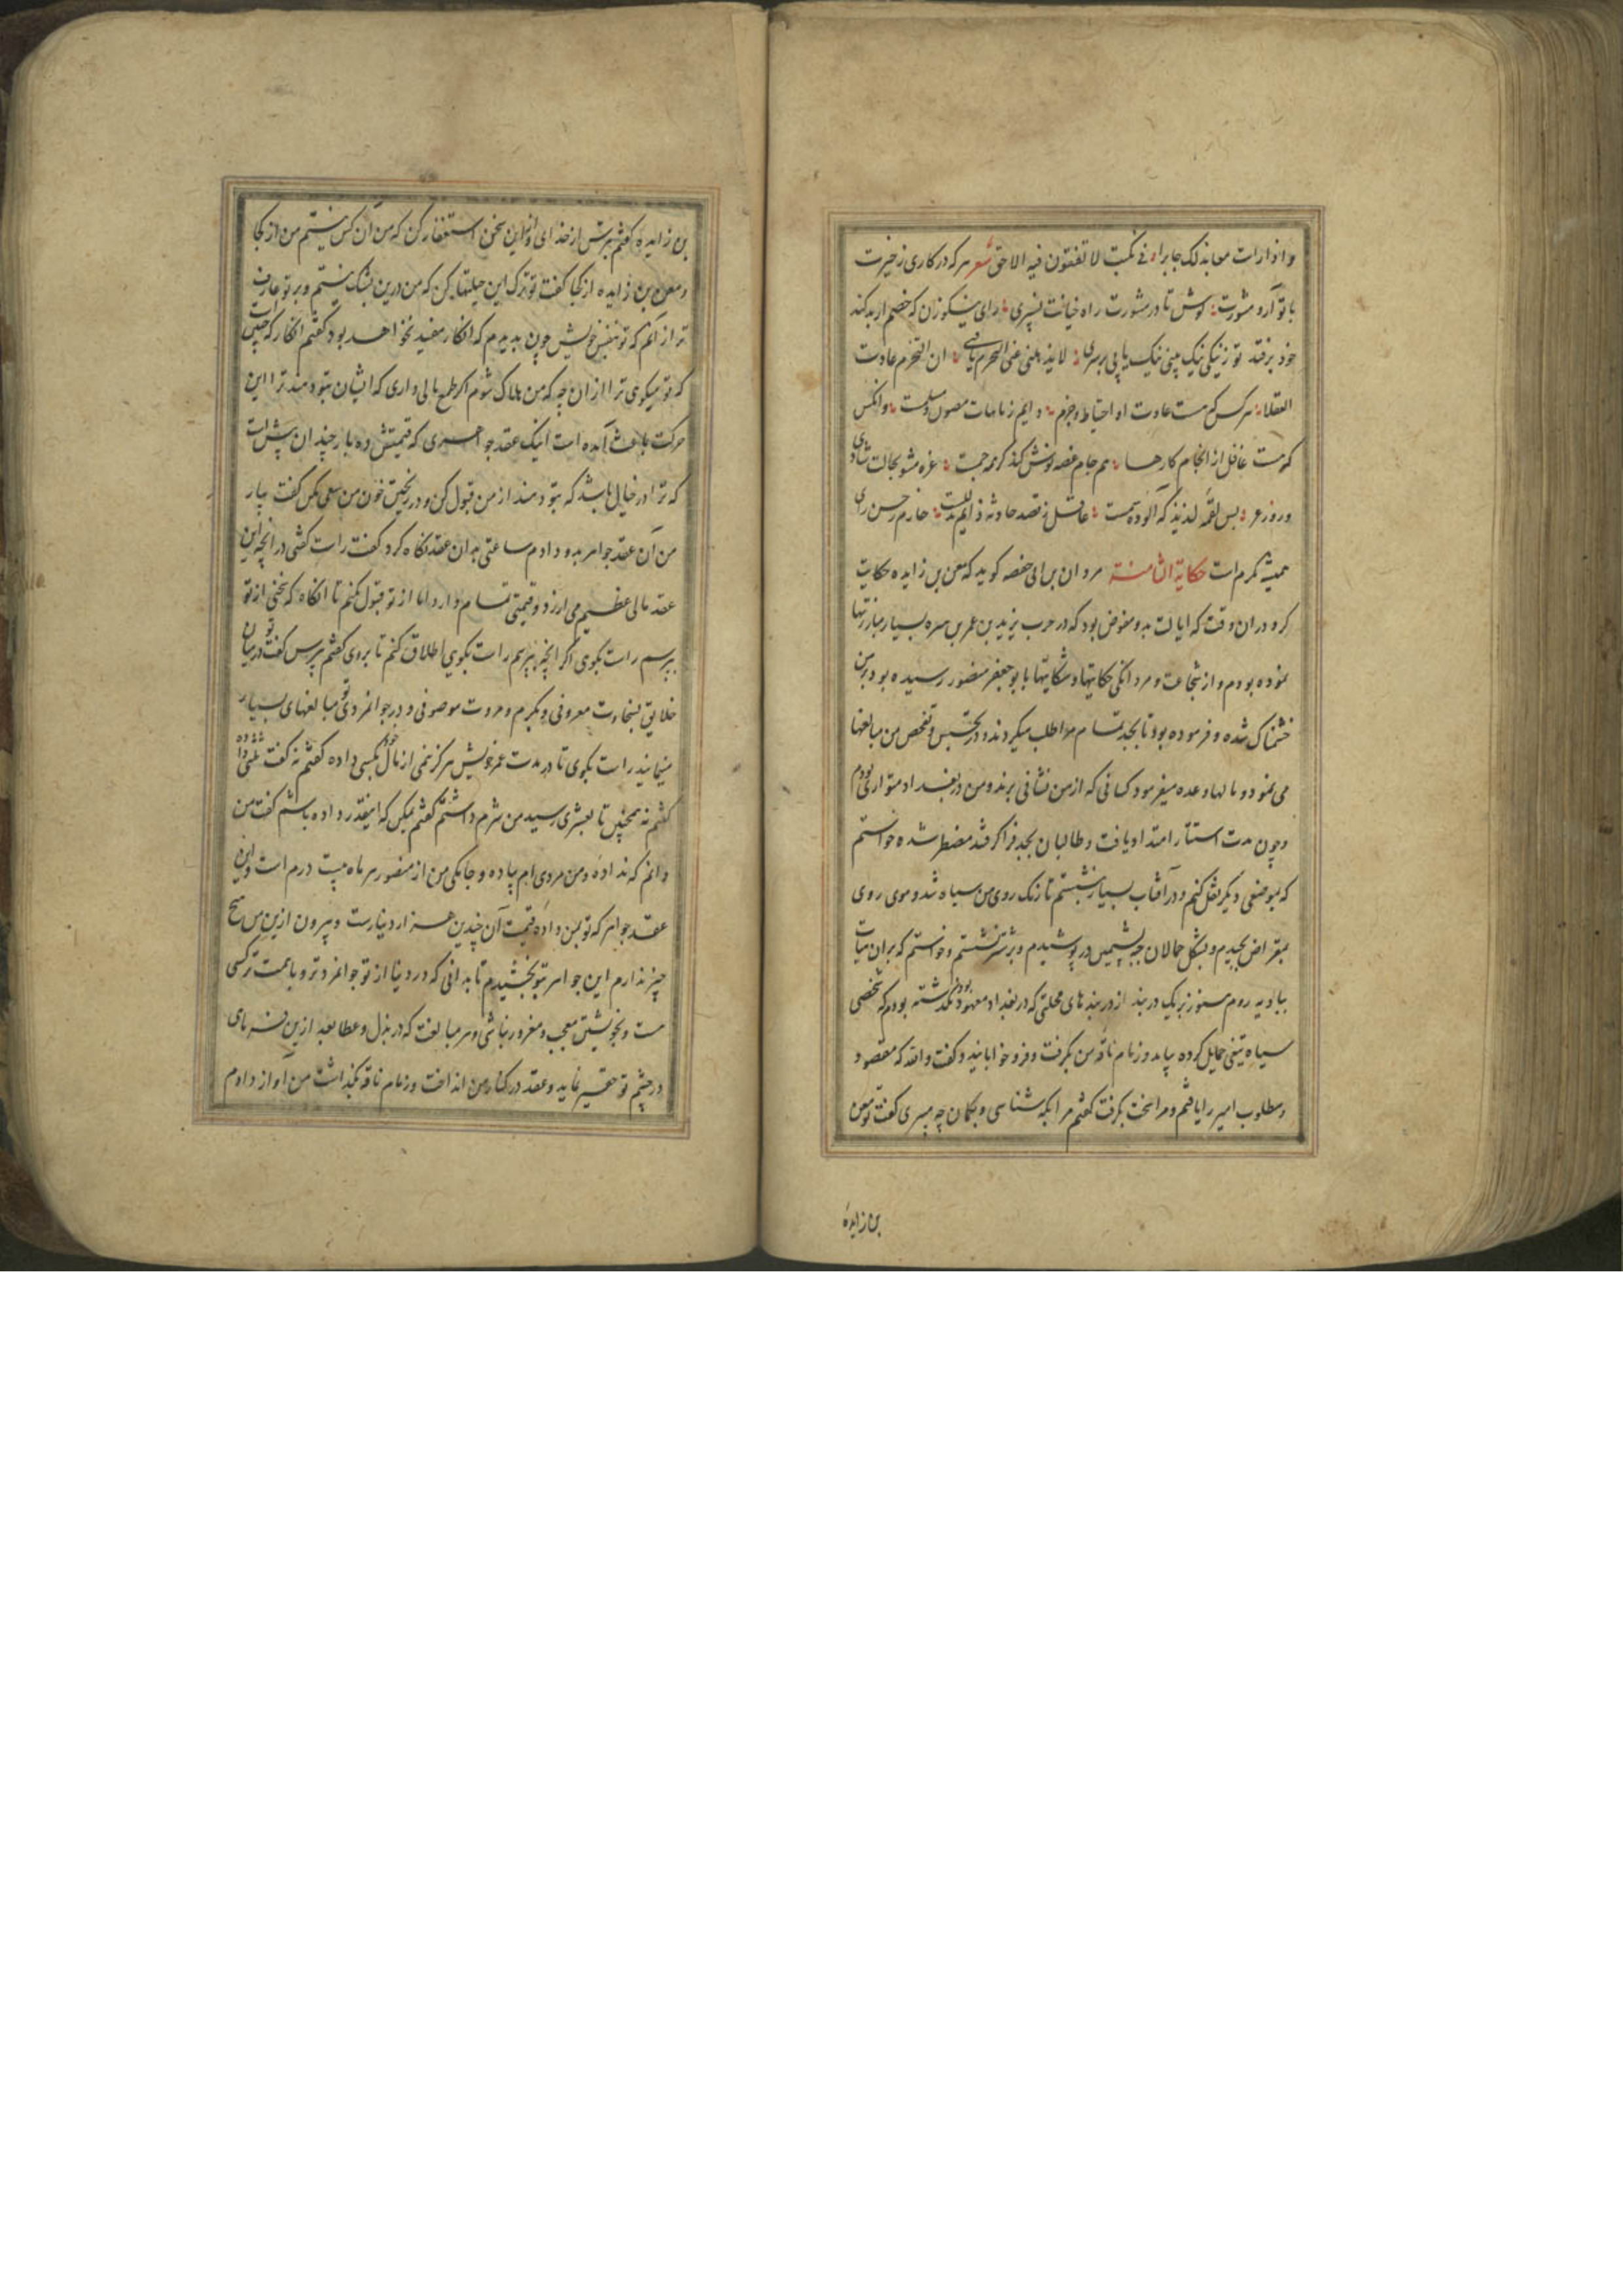 واذا رات معاند لک جابرا في نکبت لا تفقون فیه الاحق شعر هر که در کاری ز خیرت
با تو آرد مشورت کوش تا در مشورت راه خیانت نسپری رای نیکو زن که خصم ار بد کند
خود بر فتد تو ز نیکی نیک بینی نیک یابی برسری لا یذهلنی عنی التحزم ان التحزم عادت
العقلا هر کس که هست عادت او احتیاط و حزم دایم ز نایبات مصون و سلمست وانکس
که هست غافل از انجام کارها هم جام غصه نوش کند کر همه جمست غره مشو بحالت شادی
و روز عز بس لقمهٔ لذیذ که آلوده سمست عاقل ز قصد حادثه دایم حازم ز حسن رای
همیشه مکرم است حکایة الثامنة مروان بن ابی حفصه کوید که معن بن زایده حکایت
کرد در ان وقت که ایالت بدو مفوض بود که در حرب یزید بن عمر بن هبیره بسیار مبارزتها
نموده بودم و از شجاعت و مردانکی حکایتها و شکایتها با بو جعفر منصور رسیده بود بر من
خشمناک شده و فرموده بود تا بجد تمام مرا طلب میکردند و در تجسس و تفحص من مبالغها
می نمود و مالها وعده میفرمود کسانی که از من نشانی برند و من در بغداد متواری بودم
و چون مدت استتار امتداد یافت و طالبان بجد فرا کرفتند مضطر شده خواستم
که بموضعی دیکر نقل کنم و در آفتاب بسیار نشستم تا رنک روی من سیاه شد و موی روی
بمقراض بچیدم و بشکل حمالان جبه پشمین در پوشیدم و بر شتر نشستم و خواستم که بران هیات
ببادیه روم هنوز بریک دربند از دربندهای محلتی که در بغداد معهود بود نکذشته بودم که شخصی
سیاه تیغی حمایل کرده بیامد و زمام ناقه من بکرفت و فرو خوابانید و کفت والله که مقصود
و مطلوب امیر را یافتم و مرا سخت بکرفت کفتم مرا بکه شناسی و بکمان چه میبری کفت تو معن
بن زایدهٔ
بن زایدهٔ کفتم بترس از خدای و ازین سخن استغفار کن که من آن کس نیستم من از کجا
و معن بن زایده از کجا کفت تو ترک این حیلتها کن که من درین بشک نیستم و بر تو عارف
تر از آنم که تو بنفس خویش چون بدیدم که انکار مفید نخواهد بود کفتم انکار که چنین است
که تو میکوی ترا از ان چه که من هلاک شوم اکر طمع مالی داری که ایشان بتو دهند ترا این
حرکت باعث آمده است اینک عقد جواهری که قیمتش ده بار چندان بیش است
که ترا در خیال باشد که بتو دهند از من قبول کن و در ریختن خون من سعی مکن کفت بیار
من آن عقد جواهر بدو دادم ساعتی بدان عقد نکاه کرد کفت راست کفتی در آنچه این
عقد مالی عظیم می ارزد و قیمتی تمام دارد اما از تو قبول نکنم تا انکاه که سخنی از تو
بپرسم راست بکوی اکر انچه بپرسم راست بکوی اطلاق کنم تا بروی کفتم بپرس کفت تو در میان
خلایق بسخاوت معروفی و بکرم و مروت موصوفی و در جوانمردی تو مبالغهای بسیار
مینمایند راست بکوی تا در مدت عمر خویش هرکز نیمی از مال خود بکسی داده کفتم نه کفت ثلثی
کفتم نه همچنین تا بعشری رسید من شرم داشتم کفتم ممکن که اینقدر داده باشم کفت من
دانم که نداده و من مردی ام پیاده و جامکی من از منصور هر ماه بیست درم است و این
عقد جواهر که تو بمن دادهٔ قیمت آن چندین هزار دینارست و بیرون ازین من هیچ
چیز ندارم این جواهر بتو بخشیدم تا بدانی که در دنیا از تو جوانمردتر و با همت تر کسی
هست و بخویشتن معجب و مغرور نباشی و هر مبالغت که در بذل و عطا بعد ازین فرمای
در چشم تو حقیر نماید و عقد در کنار من انداخت و زمام ناقه بکذاشت من آواز دادم